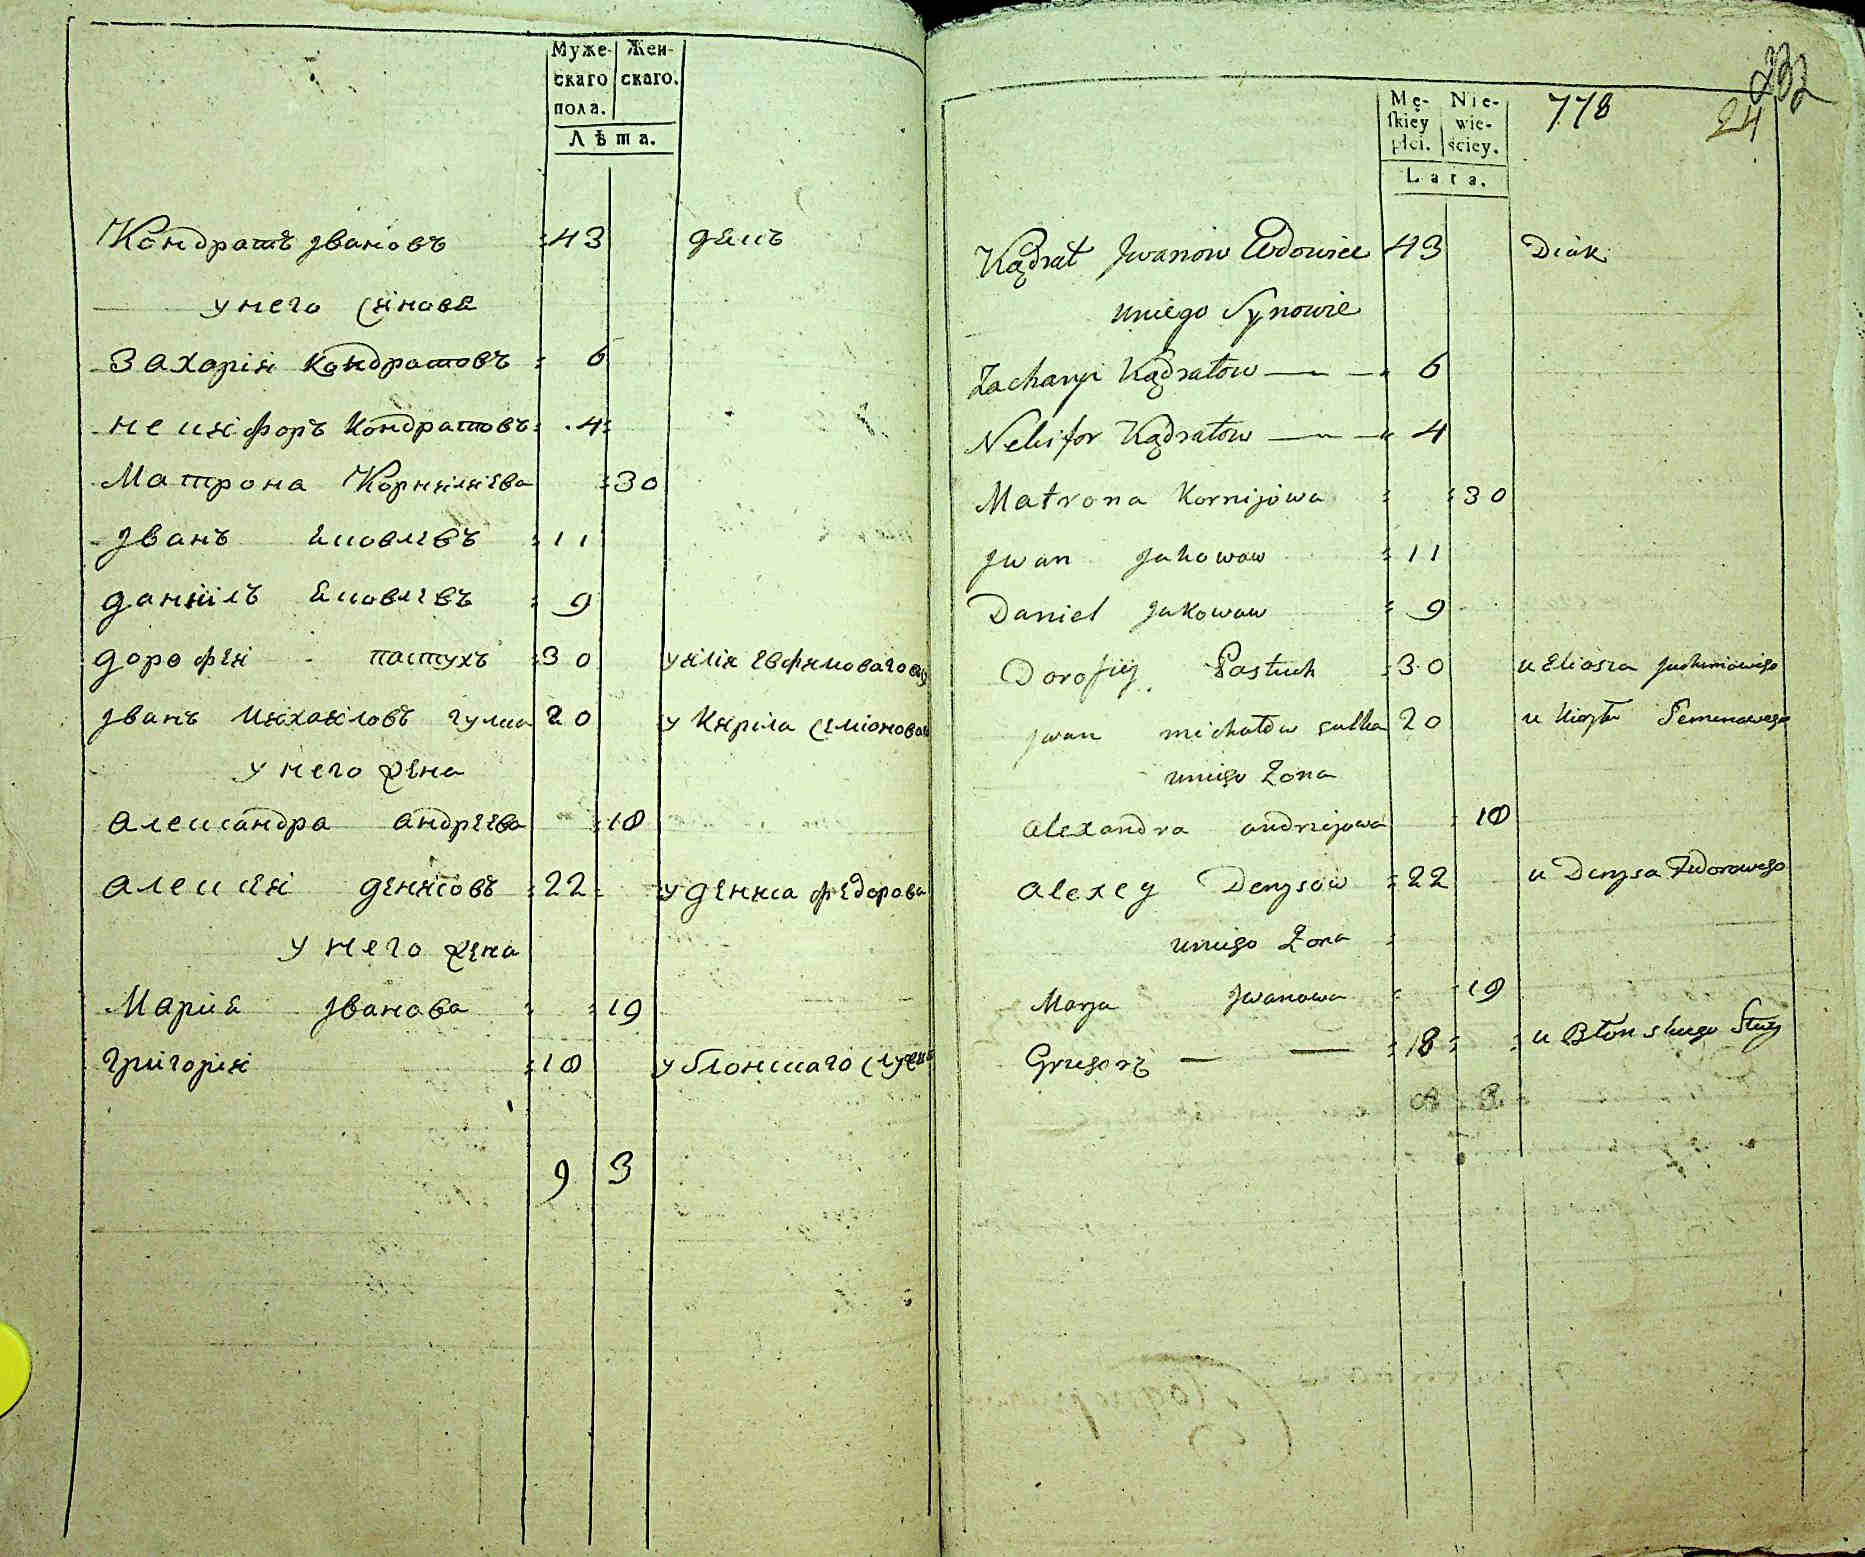 Муже- Жен-
скаго скаго.
пола.
Лѣта.
Кондратъ Ивановъ 43 дякъ
у него синове
Захарій Кондратовъ 6
Никифоръ Кондратовъ 4
Матрона Корнилиева 30
Иванъ Яковлевъ 11
Даниилъ Яковлевъ 9
Дорофей пастухъ 30 у Иліи Евфимоваго
Иванъ Михайловъ гулка 20 у Кирила Семіонова
у него жена
Александра Андреева 18
Алексей Денисовъ 22 у Дениса Федорова
у него жена
Мария Иванова 19
Григорий 18 у Блонскаго
9 3
232
778 24
Mę- Nie-
skiey wie-
płci. ściey.
Lata.
Kądrat Jwanow Wdowiec 43 Diak
uniego Synowie
Zacharyi Kądratow 6
Nekifor Kądratow 4
Matrona Kornijowa 30
Jwan Jakowow 11
Daniel Jakowow 9
Dorofiey Pastuch 30 u Eliasza Juchimowego
Jwan michałow gulka 20 u Kiryła Semenowego
uniego Żona
Alexandra andrzejowa 18
Alexey Denysow 22 u Denysa Fedorowego
uniego Żona
Marja Jwanowa 19
Grzegorz 18 u Błonskiego